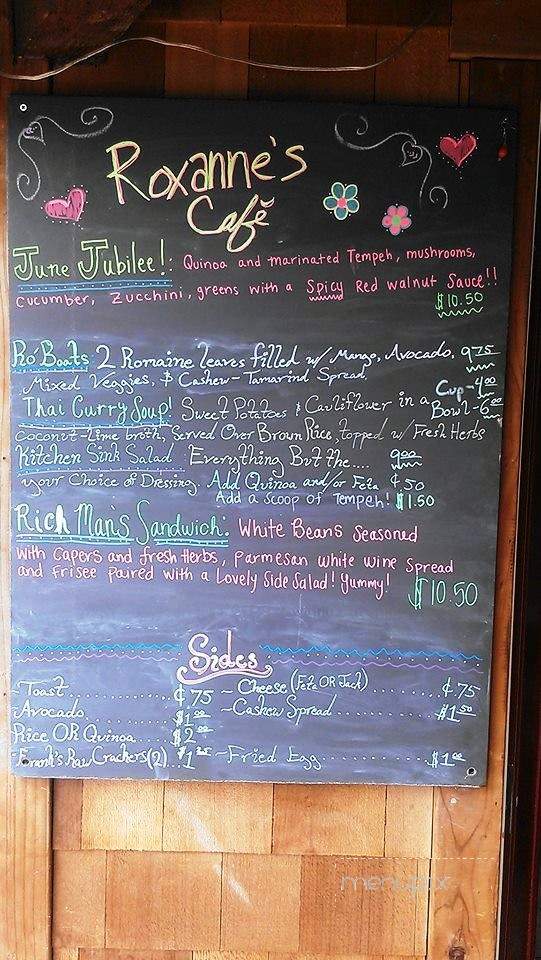 Roxanne's
Café
June Jubilee!: Quinoa and marinated Tempeh, mushrooms,
cucumber, zucchini, greens with a Spicy Red walnut Sauce!!
$10.50
Ro'Boats 2 Romaine leaves filled w/ Mango, Avocado, 9.75
Mixed Veggies, & Cashew-Tamarind Spread. Cup-4.00
Thai Curry Soup! Sweet Potatoes & Cauliflower in a Bowl-6.00
Coconut-lime broth, Served Over Brown Rice, topped w/ Fresh Herbs
Kitchen Sink Salad "Everything But the.... 9.00
your Choice of Dressing Add Quinoa and/or Feta ¢.50
Add a scoop of Tempeh! $1.50
Rich Man's Sandwich: White Beans Seasoned
with capers and fresh Herbs, parmesan white wine spread
and frisee paired with a Lovely Side Salad! Yummy! $10.50
Sides
-Toast......... ¢.75 -Cheese (Feta OR Jack)......... ¢.75
-Avocado......... $1.00 -Cashew Spread......... $1.50
Rice OR Quinoa...... $2.00
Frank's Raw Crackers (2)... $1.25 -Fried Egg......... $1.00
menupix